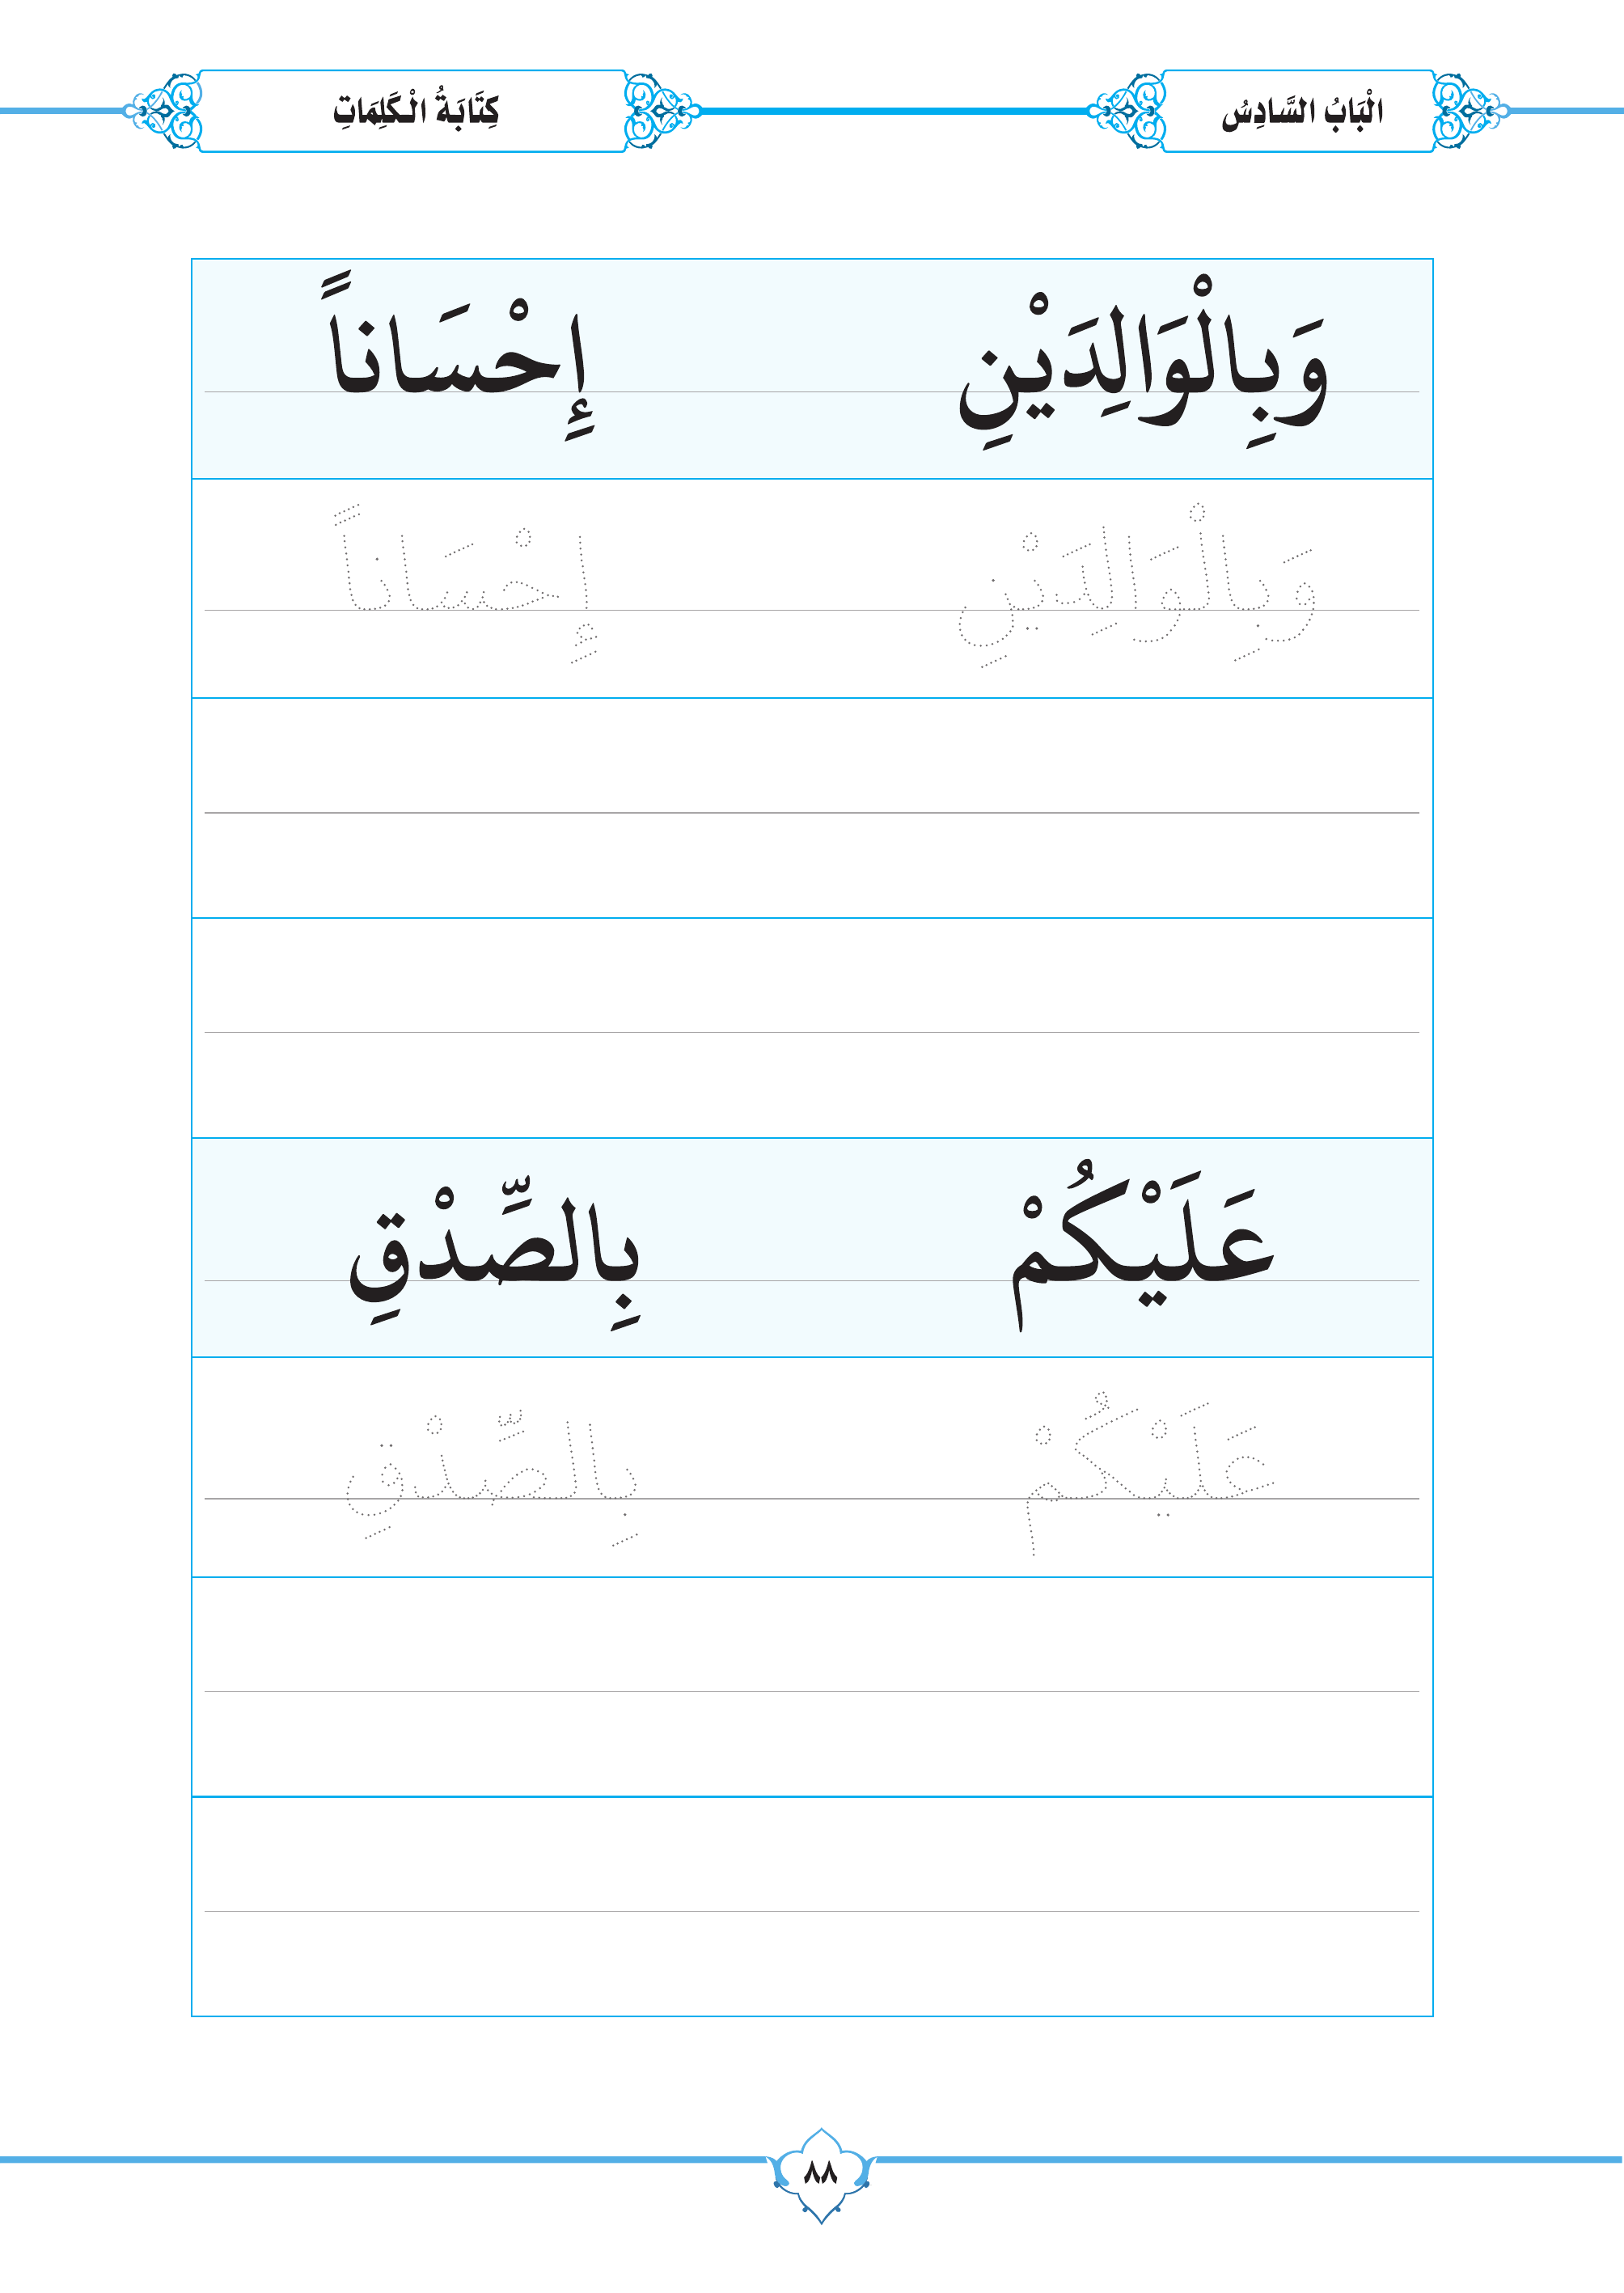 الْبَابُ السَّادِسُ
كِتَابَةُ الْكَلِمَاتِ
وَبِالْوَالِدَيْنِ إِحْسَاناً
وَبِالْوَالِدَيْنِ إِحْسَاناً
عَلَيْكُمْ بِالصِّدْقِ
عَلَيْكُمْ بِالصِّدْقِ
٨٨